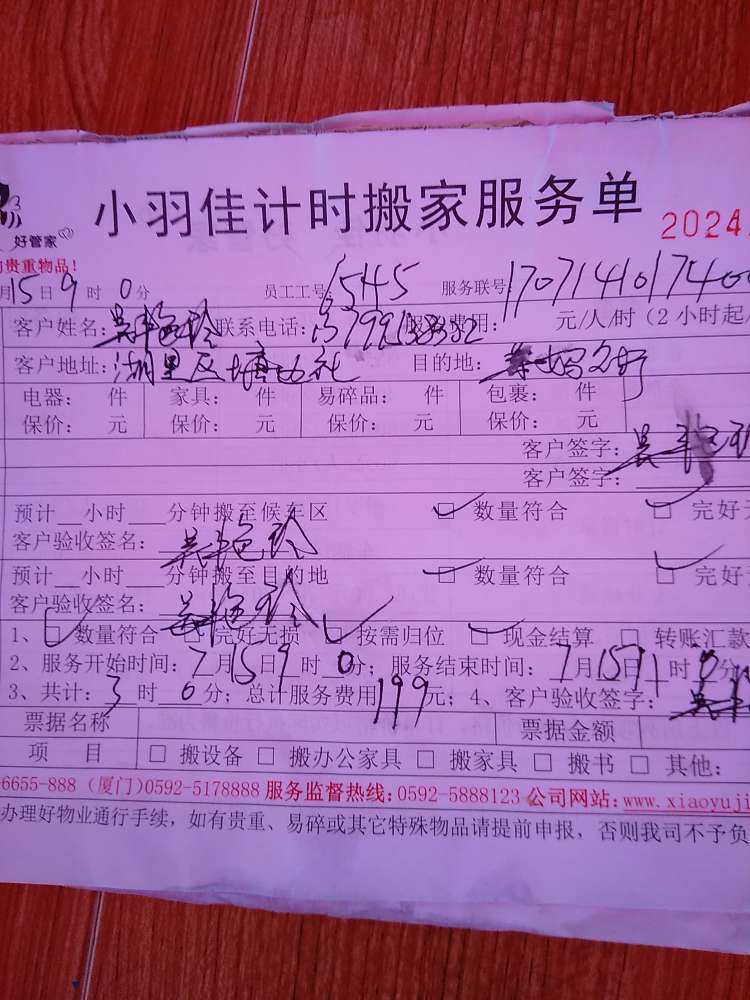 小羽佳计时搬家服务单 2024
好管家
贵重物品!
月15日9时0分 员工工号:5145 服务联号:170714101740
客户姓名: 联系电话: 费用: 元/人/时(2小时起
客户地址:湖里区塘边社 目的地:
电器: 件 家具: 件 易碎品: 件 包裹: 件
保价: 元 保价: 元 保价: 元 保价: 元
客户签字:
客户签字:
预计__小时__分钟搬至候车区 □ 数量符合 □ 完好无
客户验收签名:
预计__小时__分钟搬至目的地 □ 数量符合 □ 完好无
客户验收签名:
1、□ 数量符合 □ 完好无损 □ 按需归位 □ 现金结算 □ 转账汇款
2、服务开始时间:7月15日9时0分;服务结束时间:7月15日时0分
3、共计:3时0分;总计服务费用199元;4、客户验收签字:
票据名称 票据金额
项 目 □ 搬设备 □ 搬办公家具 □ 搬家具 □ 搬书 □ 其他:
-6655-888(厦门)0592-5178888 服务监督热线:0592-5888123 公司网站:www.xiaoyuji
办理好物业通行手续,如有贵重、易碎或其它特殊物品请提前申报,否则我司不予负